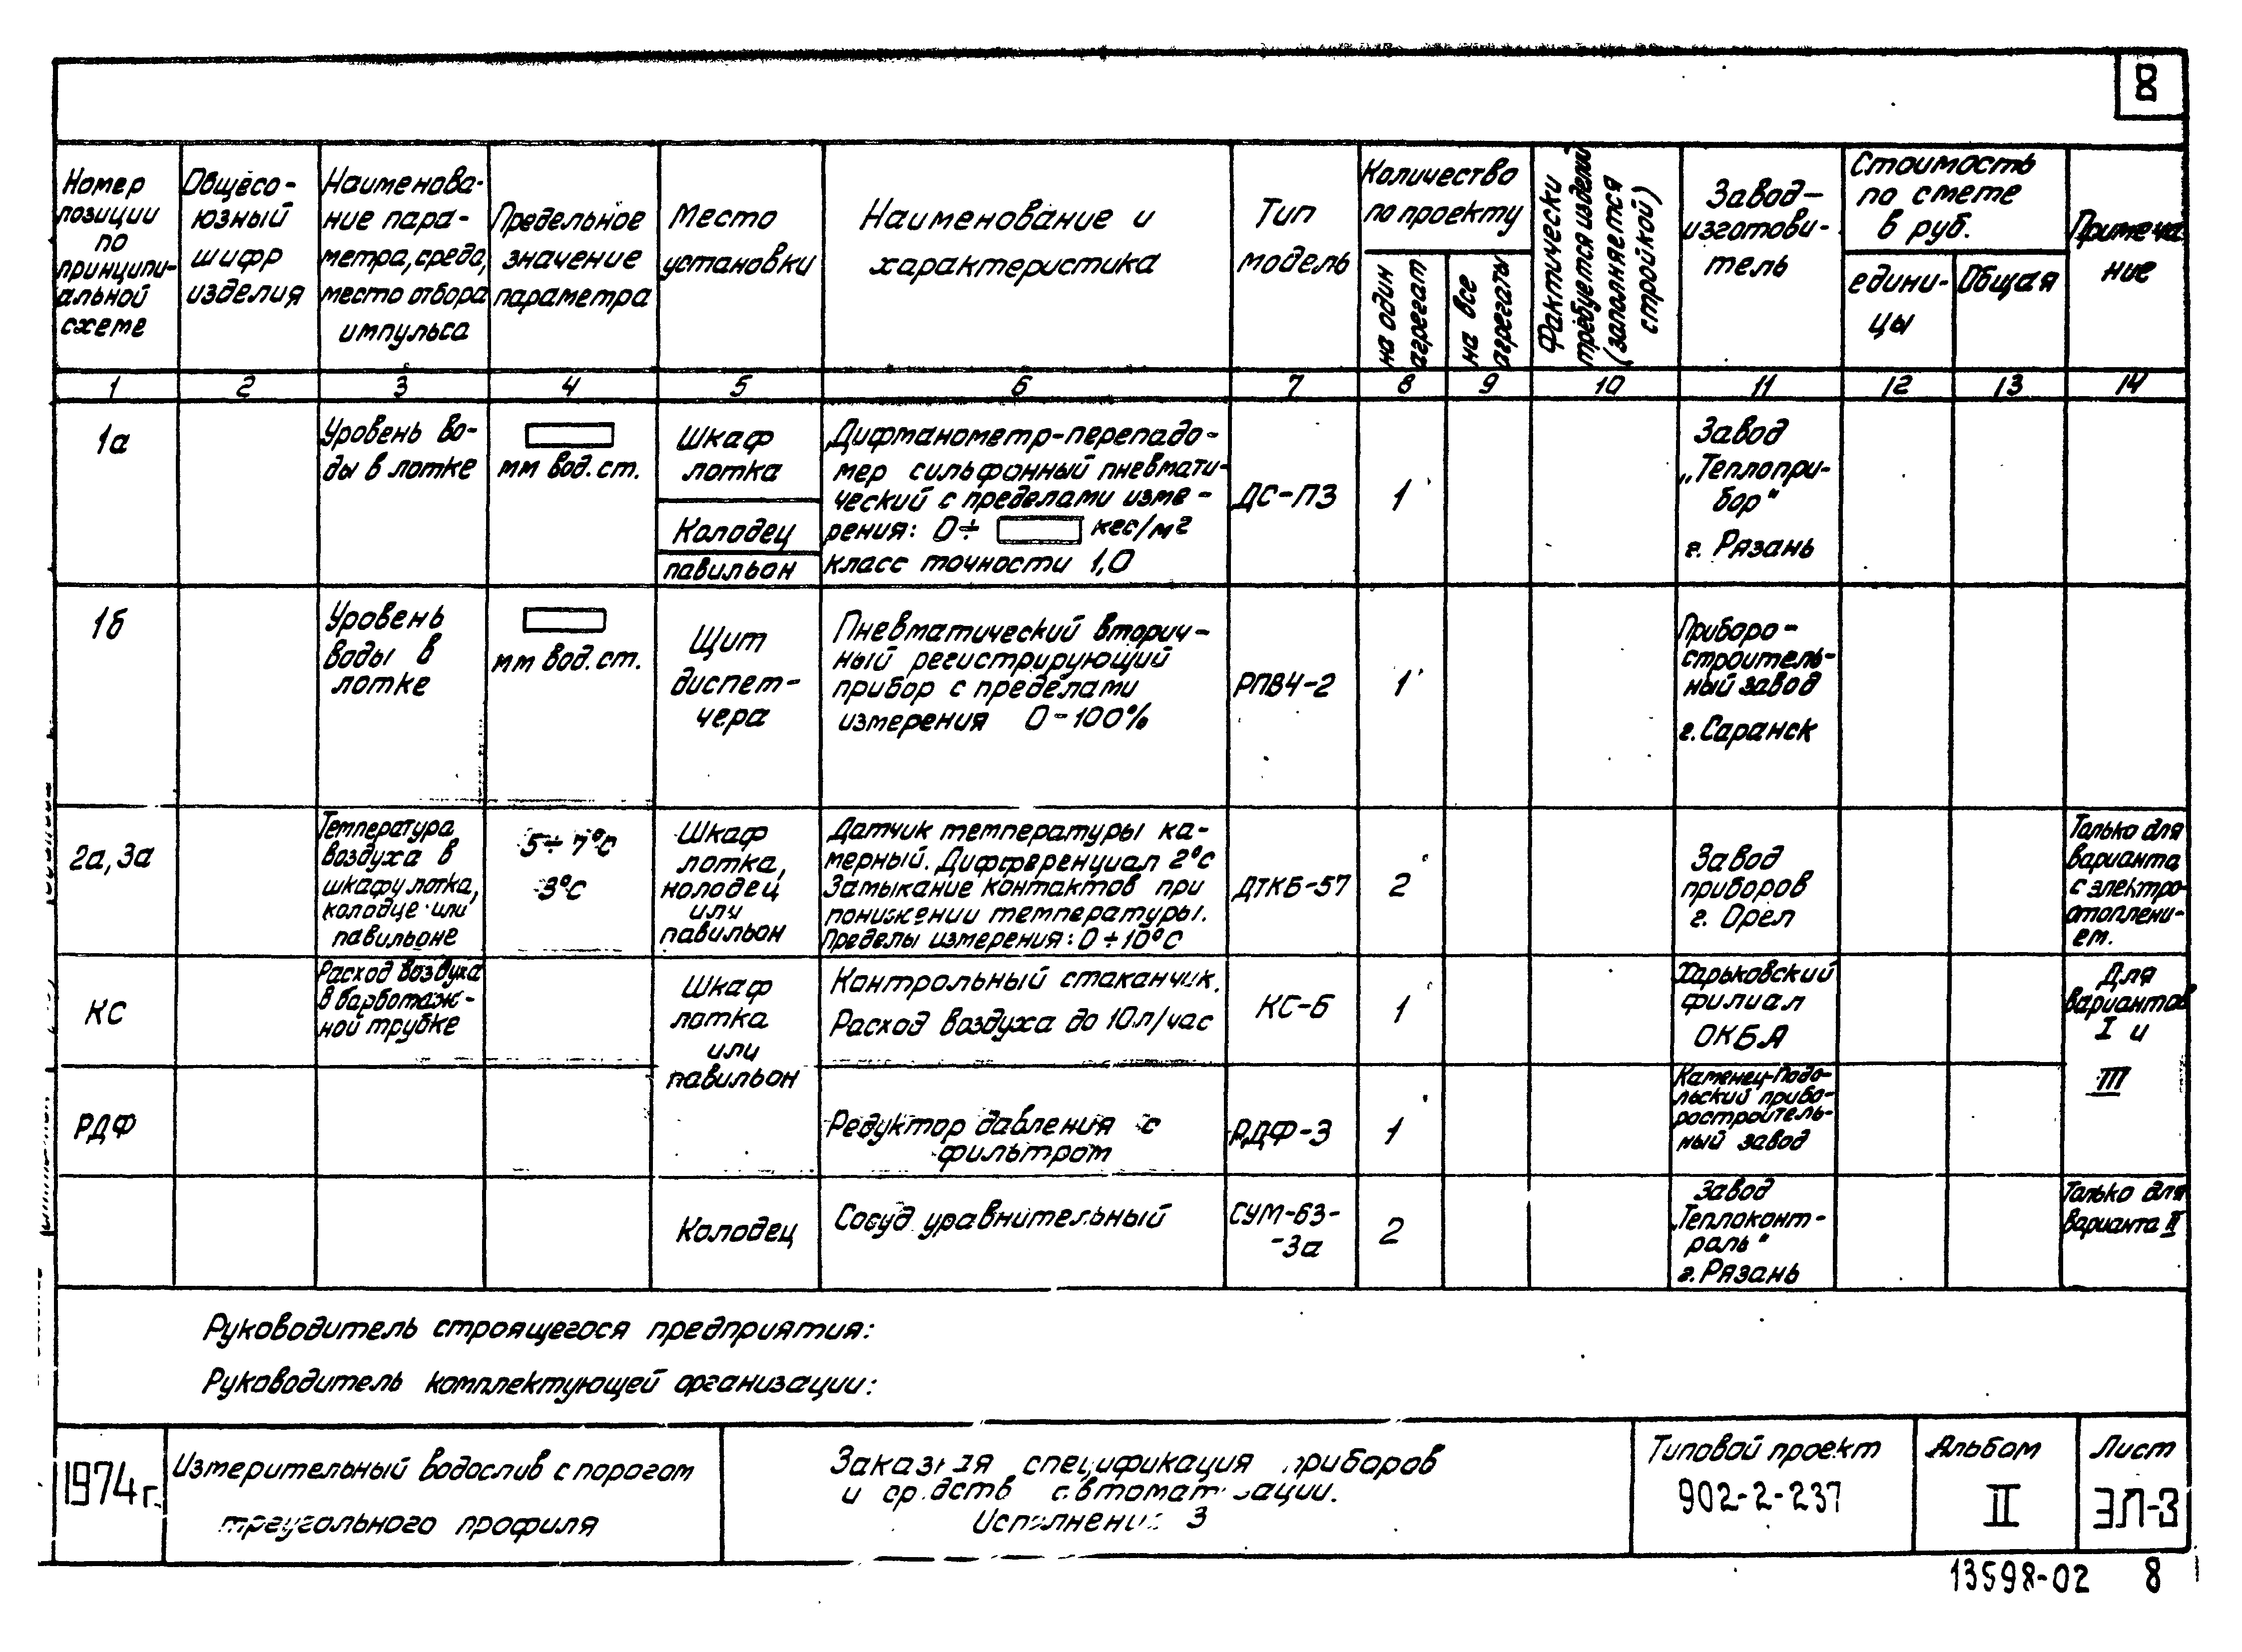 8
Номер
позиции
по
принципи-
альной
схеме
Общесо-
юзный
шифр
изделия
Наименова-
ние пара-
метра, среда,
место отбора
импульса
Предельное
значение
параметра
Место
установки
Наименование и
характеристика
Тип
модель
Количество
по проекту
на один
агрегат
на все
агрегаты
Фактически
требуется изделий
(заполняется
стройкой)
Завод-
изготови-
тель
Стоимость
по смете
в руб.
едини-
цы
Общая
Примеча
ние
1 2 3 4 5 6 7 8 9 10 11 12 13 14
1а
Уровень во-
ды в лотке
мм вод. ст.
Шкаф
лотка
Колодец
павильон
Дифманометр-перепадо-
мер сильфонный пневмати-
ческий с пределами изме-
рения: 0÷ кгс/м2
класс точности 1,0
ДС-П3
1
Завод
„Теплопри-
бор"
г. Рязань
1б
Уровень
воды в
лотке
мм вод. ст.
Щит
диспет-
чера
Пневматический вторич-
ный регистрирующий
прибор с пределами
измерения 0-100%
РПВ4-2
1
Приборо-
строитель-
ный завод
г. Саранск
2а, 3а
Температура
воздуха в
шкафу лотка,
колодце или
павильоне
5÷7°С
3°С
Шкаф
лотка,
колодец
или
павильон
Датчик температуры ка-
мерный. Дифференциал 2°С
Замыкание контактов при
понижении температуры.
Пределы измерения: 0÷10°С
ДТКБ-57
2
Завод
приборов
г. Орел
Только для
варианта
с электро-
отоплени-
ем.
КС
Расход воздуха
в барботаж-
ной трубке
Шкаф
лотка
или
павильон
Контрольный стаканчик.
Расход воздуха до 10 л/час
КС-Б
1
Харьковский
филиал
ОКБА
Для
вариантов
I и
III
РДФ
Редуктор давления с
фильтром
РДФ-3
1
Каменец-Подо-
льский прибо-
ростроитель-
ный завод
Колодец
Сосуд уравнительный
СУМ-63-
-3а
2
Завод
„Теплоконт-
роль"
г. Рязань
Только для
варианта II
Руководитель строящегося предприятия:
Руководитель комплектующей организации:
1974 г.
Измерительный водослив с порогом
треугольного профиля
Заказная спецификация приборов
и средств автоматизации.
Исполнение 3
Типовой проект
902-2-237
Альбом
II
Лист
ЭЛ-3
13598-02 8